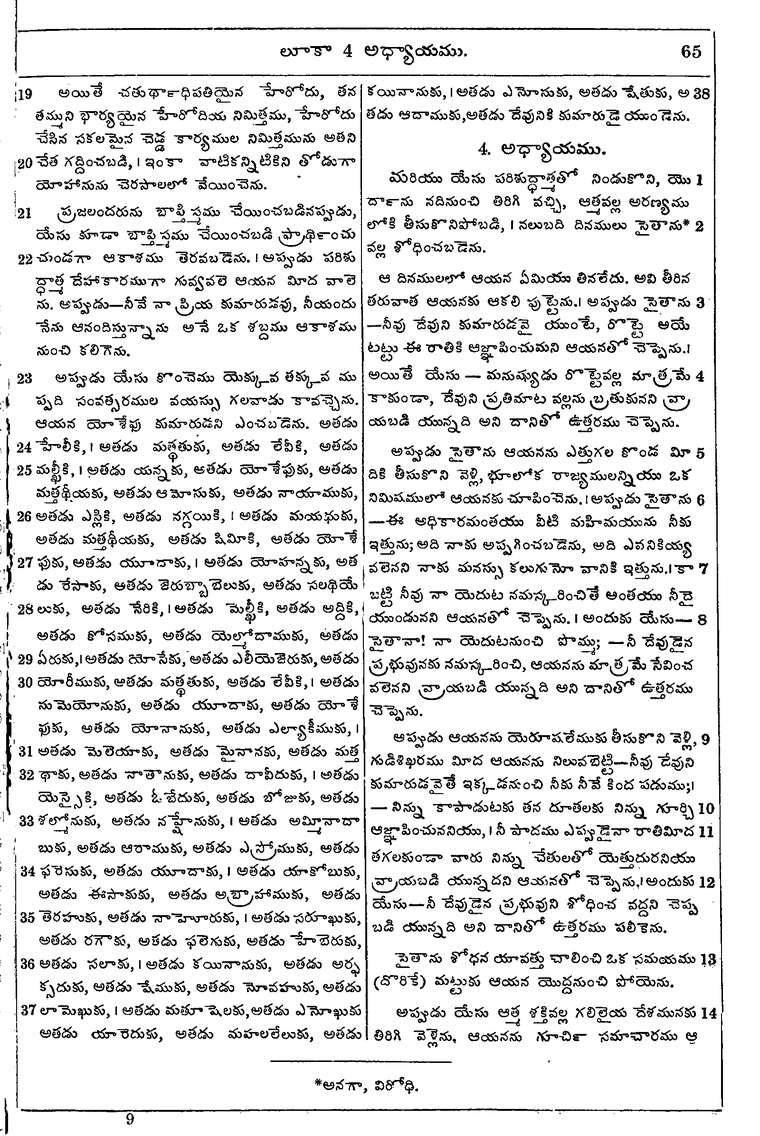 లూకా 4 అధ్యాయము. 65
19 అయితే చతుర్థాధిపతియైన హేరోదు, తన
తమ్ముని భార్యయైన హేరోదియ నిమిత్తము, హేరోదు
చేసిన సకలమైన చెడ్డ కార్యముల నిమిత్తమును అతని
20 చేత గద్దించబడి, । ఇంకా వాటికన్నిటికిని తోడుగా
యోహానును చెరసాలలో వేయించెను.
21 ప్రజలందరును బాప్తిస్మము చేయించబడినప్పుడు,
యేసు కూడా బాప్తిస్మము చేయించబడి ప్రార్థించు
22 చుండగా ఆకాశము తెరవబడెను. । అప్పుడు పరిశు
ద్ధాత్మ దేహాకారముగా గువ్వవలె ఆయన మీద వాలె
ను. అప్పుడు—నీవే నా ప్రియ కుమారుడవు, నీయందు
నేను ఆనందిస్తున్నాను అనే ఒక శబ్దము ఆకాశము
నుంచి కలిగెను.
23 అప్పుడు యేసు కొంచెము యెక్కువ తక్కువ ము
ప్పది సంవత్సరముల వయస్సు గలవాడు కావచ్చెను.
ఆయన యోశేఫు కుమారుడని ఎంచబడెను. అతడు
24 హేలీకి, । అతడు మత్థతుకు, అతడు లేవీకి, అతడు
25 మల్ఖీకి, । అతడు యన్నకు, అతడు యోశేఫుకు, అతడు
మత్తథీయకు, అతడు ఆమోసుకు, అతడు నాయూముకు,
26 అతడు ఎస్లికి, అతడు నగ్గయికి, । అతడు మయథుకు,
అతడు మత్తథీయకు, అతడు షిమీకి, అతడు యోశే
27 ఫుకు, అతడు యూదాకు, । అతడు యోహన్నకు, అత
డు రేసాకు, అతడు జెరుబ్బాబెలుకు, అతడు సలథియే
28 లుకు, అతడు నేరికి, । అతడు మెల్ఖీకి, అతడు అద్దికి,
అతడు కోసముకు, అతడు యెల్మోదాముకు, అతడు
29 ఏరుకు, । అతడు యోసేకు, అతడు ఎలీయెజెరుకు, అతడు
30 యోరీముకు, అతడు మత్థతుకు, అతడు లేవీకి, । అతడు
సుమెయోనుకు, అతడు యూదాకు, అతడు యోశే
ఫుకు, అతడు యోనానుకు, అతడు ఎల్యాకీముకు, ।
31 అతడు మెలెయాకు, అతడు మైనానకు, అతడు మత్త
32 థాకు, అతడు నాతానుకు, అతడు దావీదుకు, । అతడు
యెస్సైకి, అతడు ఓబేదుకు, అతడు బోజుకు, అతడు
33 శల్మోనుకు, అతడు నహ్షోనుకు, । అతడు అమ్మినాదా
బుకు, అతడు ఆరాముకు, అతడు ఎస్రోముకు, అతడు
34 ఫరెసుకు, అతడు యూదాకు, । అతడు యాకోబుకు,
అతడు ఈసాకుకు, అతడు అబ్రాహాముకు, అతడు
35 తెరహుకు, అతడు నాహొరుకు, । అతడు సరూఖుకు,
అతడు రగౌకు, అతడు ఫలెసుకు, అతడు హేబెరుకు,
36 అతడు సలాకు, । అతడు కయినానుకు, అతడు అర్ఫ
క్సదుకు, అతడు షేముకు, అతడు నోవహుకు, అతడు
37 లామెఖుకు, । అతడు మతూషెలకు, అతడు ఎనోఖుకు
అతడు యారెదుకు, అతడు మహలలేలుకు, అతడు
కయినానుకు, । అతడు ఎనోసుకు, అతడు షేతుకు, అ 38
తడు ఆదాముకు, అతడు దేవునికి కుమారుడై యుండెను.
4. అధ్యాయము.
మరియు యేసు పరిశుద్ధాత్మతో నిండుకొని, యొ 1
ర్దాను నదినుంచి తిరిగి వచ్చి, ఆత్మవల్ల అరణ్యము
లోకి తీసుకొనిపోబడి, । నలుబది దినములు సైతాను* 2
వల్ల శోధించబడెను.
ఆ దినములలో ఆయన ఏమియు తినలేదు. అవి తీరిన
తరువాత ఆయనకు ఆకలి పుట్టెను. । అప్పుడు సైతాను 3
—నీవు దేవుని కుమారుడవై యుంటే, రొట్టె అయే
టట్టు ఈ రాతికి ఆజ్ఞాపించుమని ఆయనతో చెప్పెను. ।
అయితే యేసు — మనుష్యుడు రొట్టెవల్ల మాత్రమే 4
కాకుండా, దేవుని ప్రతిమాట వల్లను బ్రతుకునని వ్రా
యబడి యున్నది అని దానితో ఉత్తరము చెప్పెను.
అప్పుడు సైతాను ఆయనను ఎత్తుగల కొండ మీ 5
దికి తీసుకొని వెళ్లి, భూలోక రాజ్యములన్నియు ఒక
నిమిషములో ఆయనకు చూపించెను. । అప్పుడు సైతాను 6
—ఈ అధికారమంతయు వీటి మహిమయును నీకు
ఇత్తును; అది నాకు అప్పగించబడెను, అది ఎవనికియ్య
వలెనని నాకు మనస్సు కలుగునో వానికి ఇత్తును. । కా 7
బట్టి నీవు నా యెదుట నమస్కరించితే అంతయు నీదై
యుండునని ఆయనతో చెప్పెను. । అందుకు యేసు— 8
సైతానా! నా యెదుటనుంచి పొమ్ము; —నీ దేవుడైన
ప్రభువునకు నమస్కరించి, ఆయనను మాత్రమే సేవించ
వలెనని వ్రాయబడి యున్నది అని దానితో ఉత్తరము
చెప్పెను.
అప్పుడు ఆయనను యెరూషలేముకు తీసుకొని వెళ్లి, 9
గుడిశిఖరము మీద ఆయనను నిలువబెట్టి—నీవు దేవుని
కుమారుడవైతే ఇక్కడనుంచి నీకు నీవే కింద పడుము; ।
— నిన్ను కాపాడుటకు తన దూతలకు నిన్ను గూర్చి 10
ఆజ్ఞాపించుననియు, । నీ పాదము ఎప్పుడైనా రాతిమీద 11
తగలకుండా వారు నిన్ను చేతులతో యెత్తుదురనియు
వ్రాయబడి యున్నదని ఆయనతో చెప్పెను. । అందుకు 12
యేసు—నీ దేవుడైన ప్రభువుని శోధించ వద్దని చెప్ప
బడి యున్నది అని దానితో ఉత్తరము పలికెను.
సైతాను శోధన యావత్తు చాలించి ఒక సమయము 13
(దొరికే) మట్టుకు ఆయన యొద్దనుంచి పోయెను.
అప్పుడు యేసు ఆత్మ శక్తివల్ల గలిలైయ దేశమునకు 14
తిరిగి వెళ్లెను, ఆయనను గూర్చి సమాచారము ఆ
*అనగా, విరోధి.
9